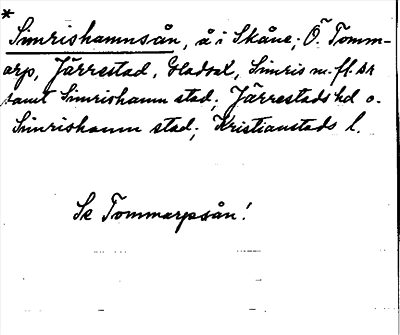 *
Simrishamnsån, å i Skåne; Ö. Tomm-
arp, Järrestad, Gladsax, Simris m. fl. sr
samt Simrishamn stad; Järrestads hd o.
Simrishamn stad; Kristianstads l.
Se Tommarpsån!